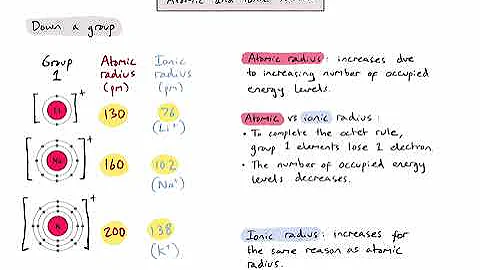 Down a group
Group
1
Atomic
radius
(pm)
Ionic
radius
(pm)
Li
+
130
76
(Li⁺)
Na
+
160
102
(Na⁺)
K
+
200
138
(K⁺)
Atomic radius: increases due
to increasing number of occupied
energy levels.
Atomic vs ionic radius:
• To complete the octet rule,
group 1 elements lose 1 electron.
• The number of occupied energy
levels decreases.
Ionic radius: increases for
the same reason as atomic
radius.